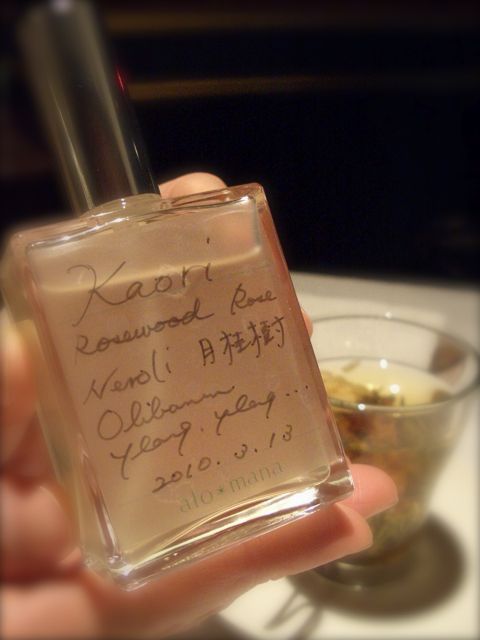 Kaori
Rosewood Rose
Neroli 月桂樹
Olibanum
Ylang. ylang...
2010.3.13
alo*mana